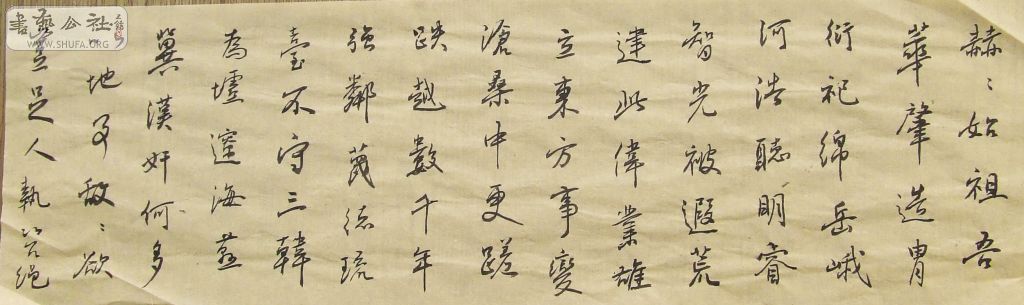 赫〻始祖吾
華肇造胄
衍祀綿岳峨
河浩聰明睿
智光被遐荒
建此偉業雄
立東方事變
滄桑中更蹉
跌越數千年
強鄰蔑德琉
臺不守三韓
為墟遼海燕
冀漢奸何多
地事敵〻欲
豈足人執笞绳
書藝公社
WWW.SHUFA.ORG